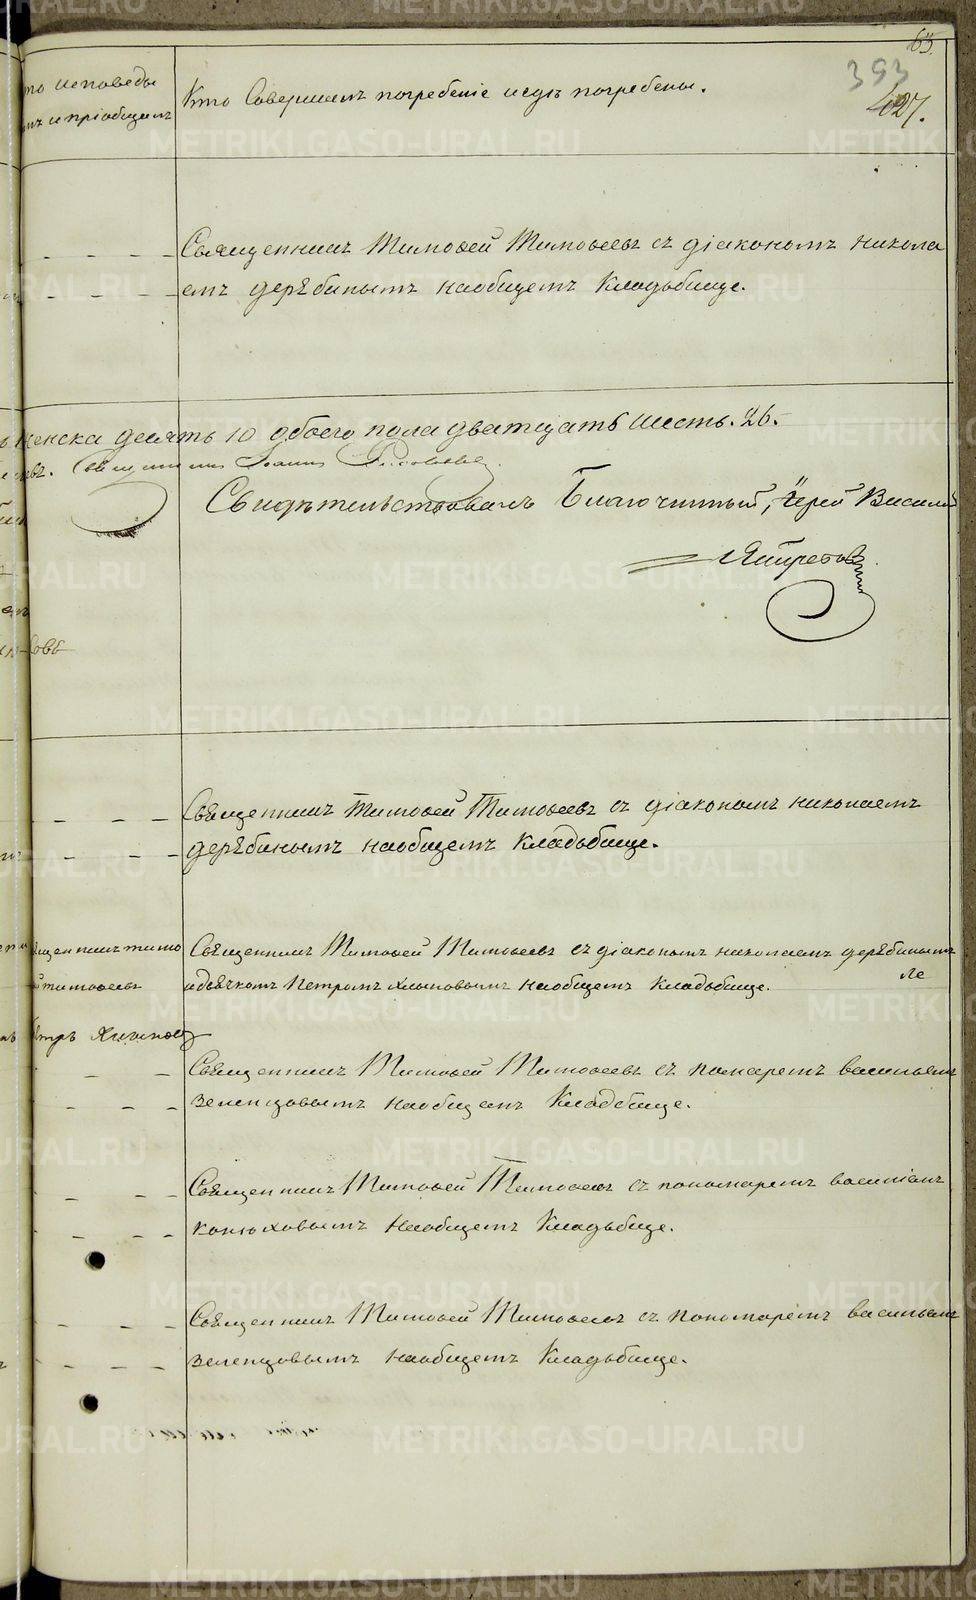 63.
393
427.
то исповеды
и пріобщалъ
Кто Совершалъ погребеніе и гдѣ погребены.
Священникъ Тимофей Тимофеевъ съ діакономъ никола
емъ дерябинымъ наобщемъ Кладьбище.
женска десять 10 обоего пола дватцать шесть. 26.
Священникъ Іоаннъ
Свидѣтельствовалъ Благочинный, Іерей Василий
Священникъ Тимофей Тимофеевъ съ діакономъ николаемъ
дерябинымъ наобщемъ Кладьбище.
щенникъ тимо
й тимофеевъ
Священникъ Тимофей Тимофеевъ съ діакономъ николаемъ дерябинымъ
идьячкомъ Петромъ Хлыновымъ наобщемъ Кладьбище.
Священникъ Тимофей Тимофеевъ съ пономаремъ васильемъ
зеленцовымъ наобщемъ Кладбище.
Священникъ Тимофей Тимофеевъ съ пономаремъ василіемъ
конюховымъ наобщемъ Кладьбище.
Священникъ Тимофей Тимофеевъ съ пономаремъ васильемъ
зеленцовымъ наобщемъ Кладьбище.
METRIKI.GASO-URAL.RU